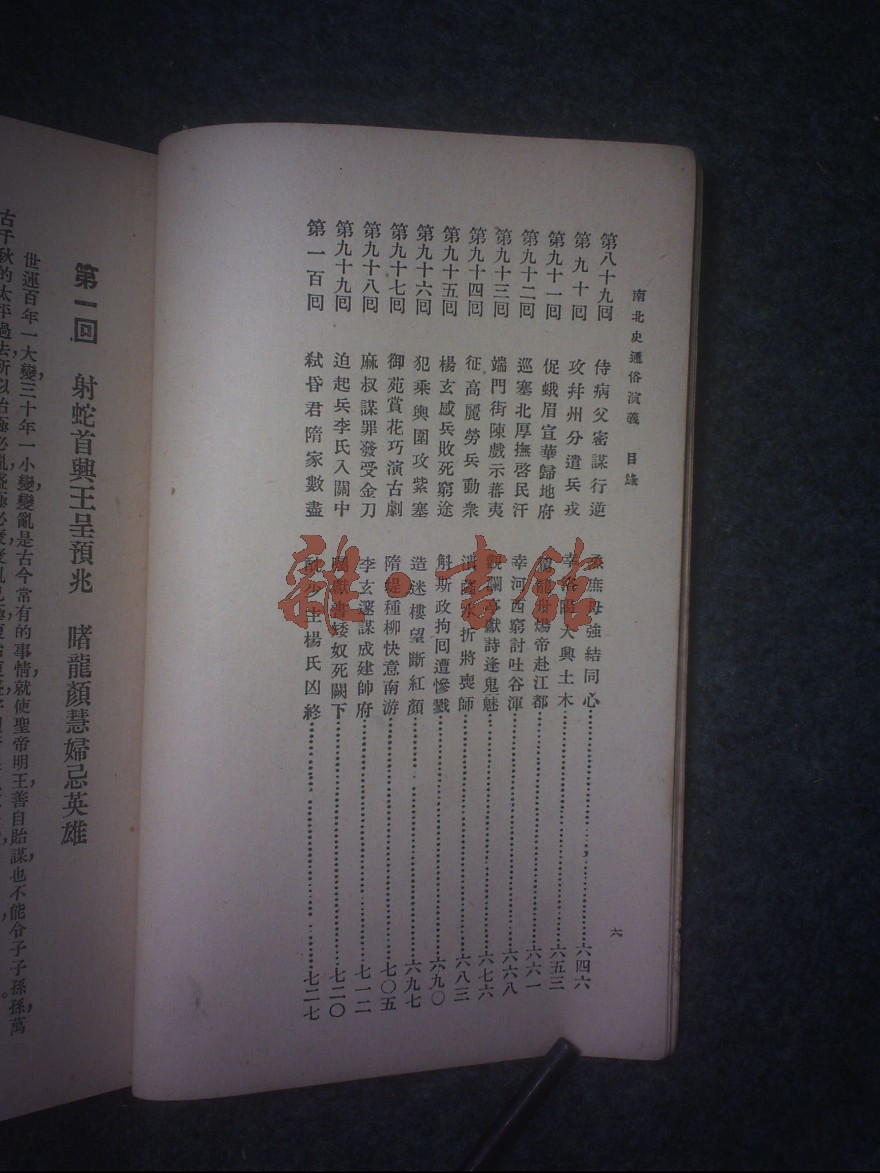 南北史通俗演義 目錄
六
第八十九回 侍病父密謀行逆 烝庶母強結同心……六四六
第九十回 攻幷州分遣兵戎 幸洛陽大興土木……六五三
第九十一回 促蛾眉宣華歸地府 龍舟煬帝赴江都……六六一
第九十二回 巡塞北厚撫啓民汗 幸河西窮討吐谷渾……六六八
第九十三回 端門街陳戲示蕃夷 觀瀾亭獻詩逢鬼魅……六七六
第九十四回 征高麗勞兵動衆 潰薩水折將喪師……六八三
第九十五回 楊玄感兵敗死窮途 斛斯政拘回遭慘戮……六九〇
第九十六回 犯乘輿圍攻紫塞 造迷樓望斷紅顏……六九七
第九十七回 御苑賞花巧演古劇 隋堤種柳快意南游……七〇五
第九十八回 麻叔謀罪發受金刀 李玄邃謀成建帥府……七一二
第九十九回 迫起兵李氏入關中 獻書矮奴死闕下……七二〇
第一百回 弒昏君隋家數盡 酖少主楊氏凶終……七二七
雜·書館
第一回 射蛇首興王呈預兆 睹龍顏慧婦忌英雄
世運百年一大變,三十年一小變,變亂是古今常有的事情,就使聖帝明王,善自貽謀,也不能令子子孫孫,萬
古千秋的太平過去,所以治極必亂,盛極必衰